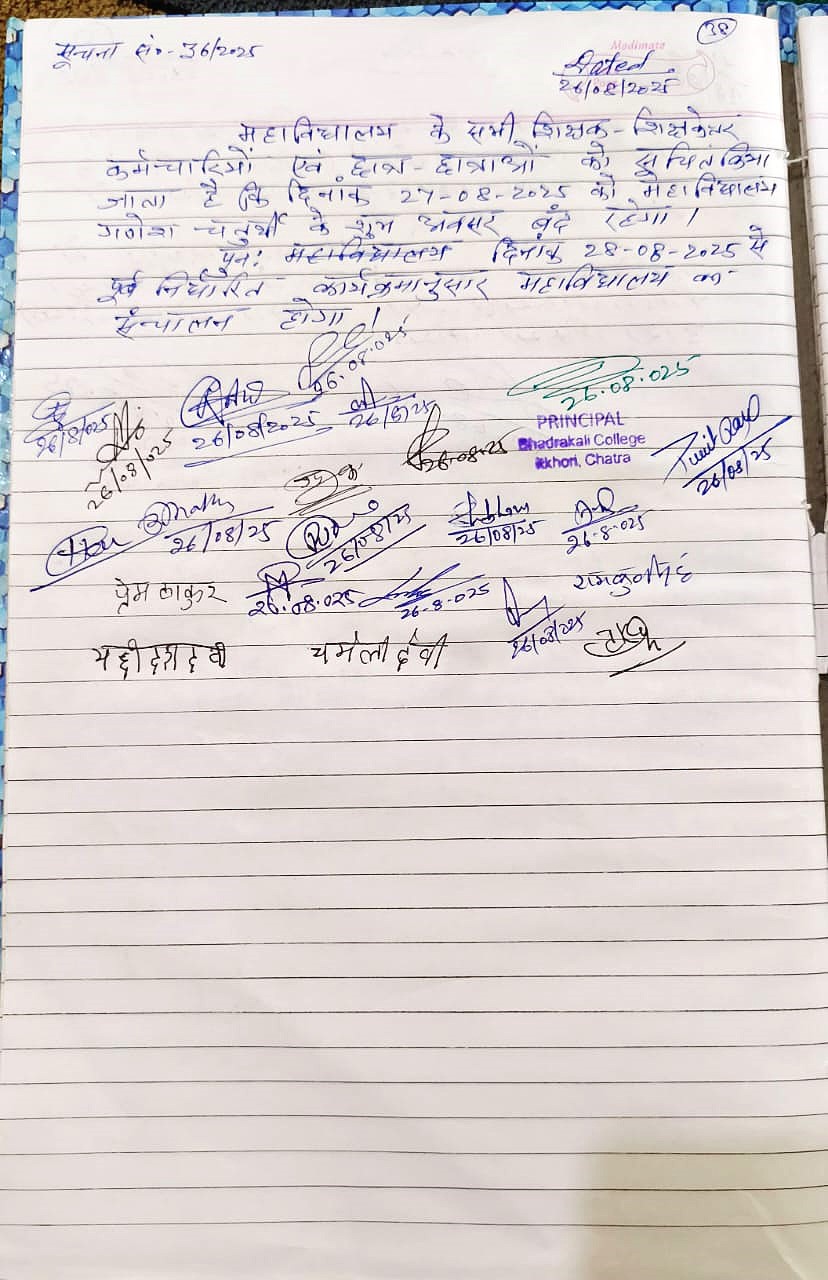 38
सूचना सं०- 36/2025
Dated
26/08/2025
महाविद्यालय के सभी शिक्षक-शिक्षकेत्तर
कर्मचारियों एवं छात्र-छात्राओं को सूचित किया
जाता है कि दिनांक 27-08-2025 को महाविद्यालय
गणेश चतुर्थी के शुभ अवसर बंद रहेगा।
पुनः महाविद्यालय दिनांक 28-08-2025 से
पूर्व निर्धारित कार्यक्रमानुसार महाविद्यालय का
संचालन होगा।
26.08.025
26.08.025
26/8/025
26/08/2025
26/8/25
PRINCIPAL
Bhadrakali College
Itkhori, Chatra
26/08/025
26.08.025
26/08/25
26/08/25
26/08/25
26/08/25
26.8.025
प्रेम ठाकुर
26.08.025
26.8.025
26/08/025
चमेली देवी